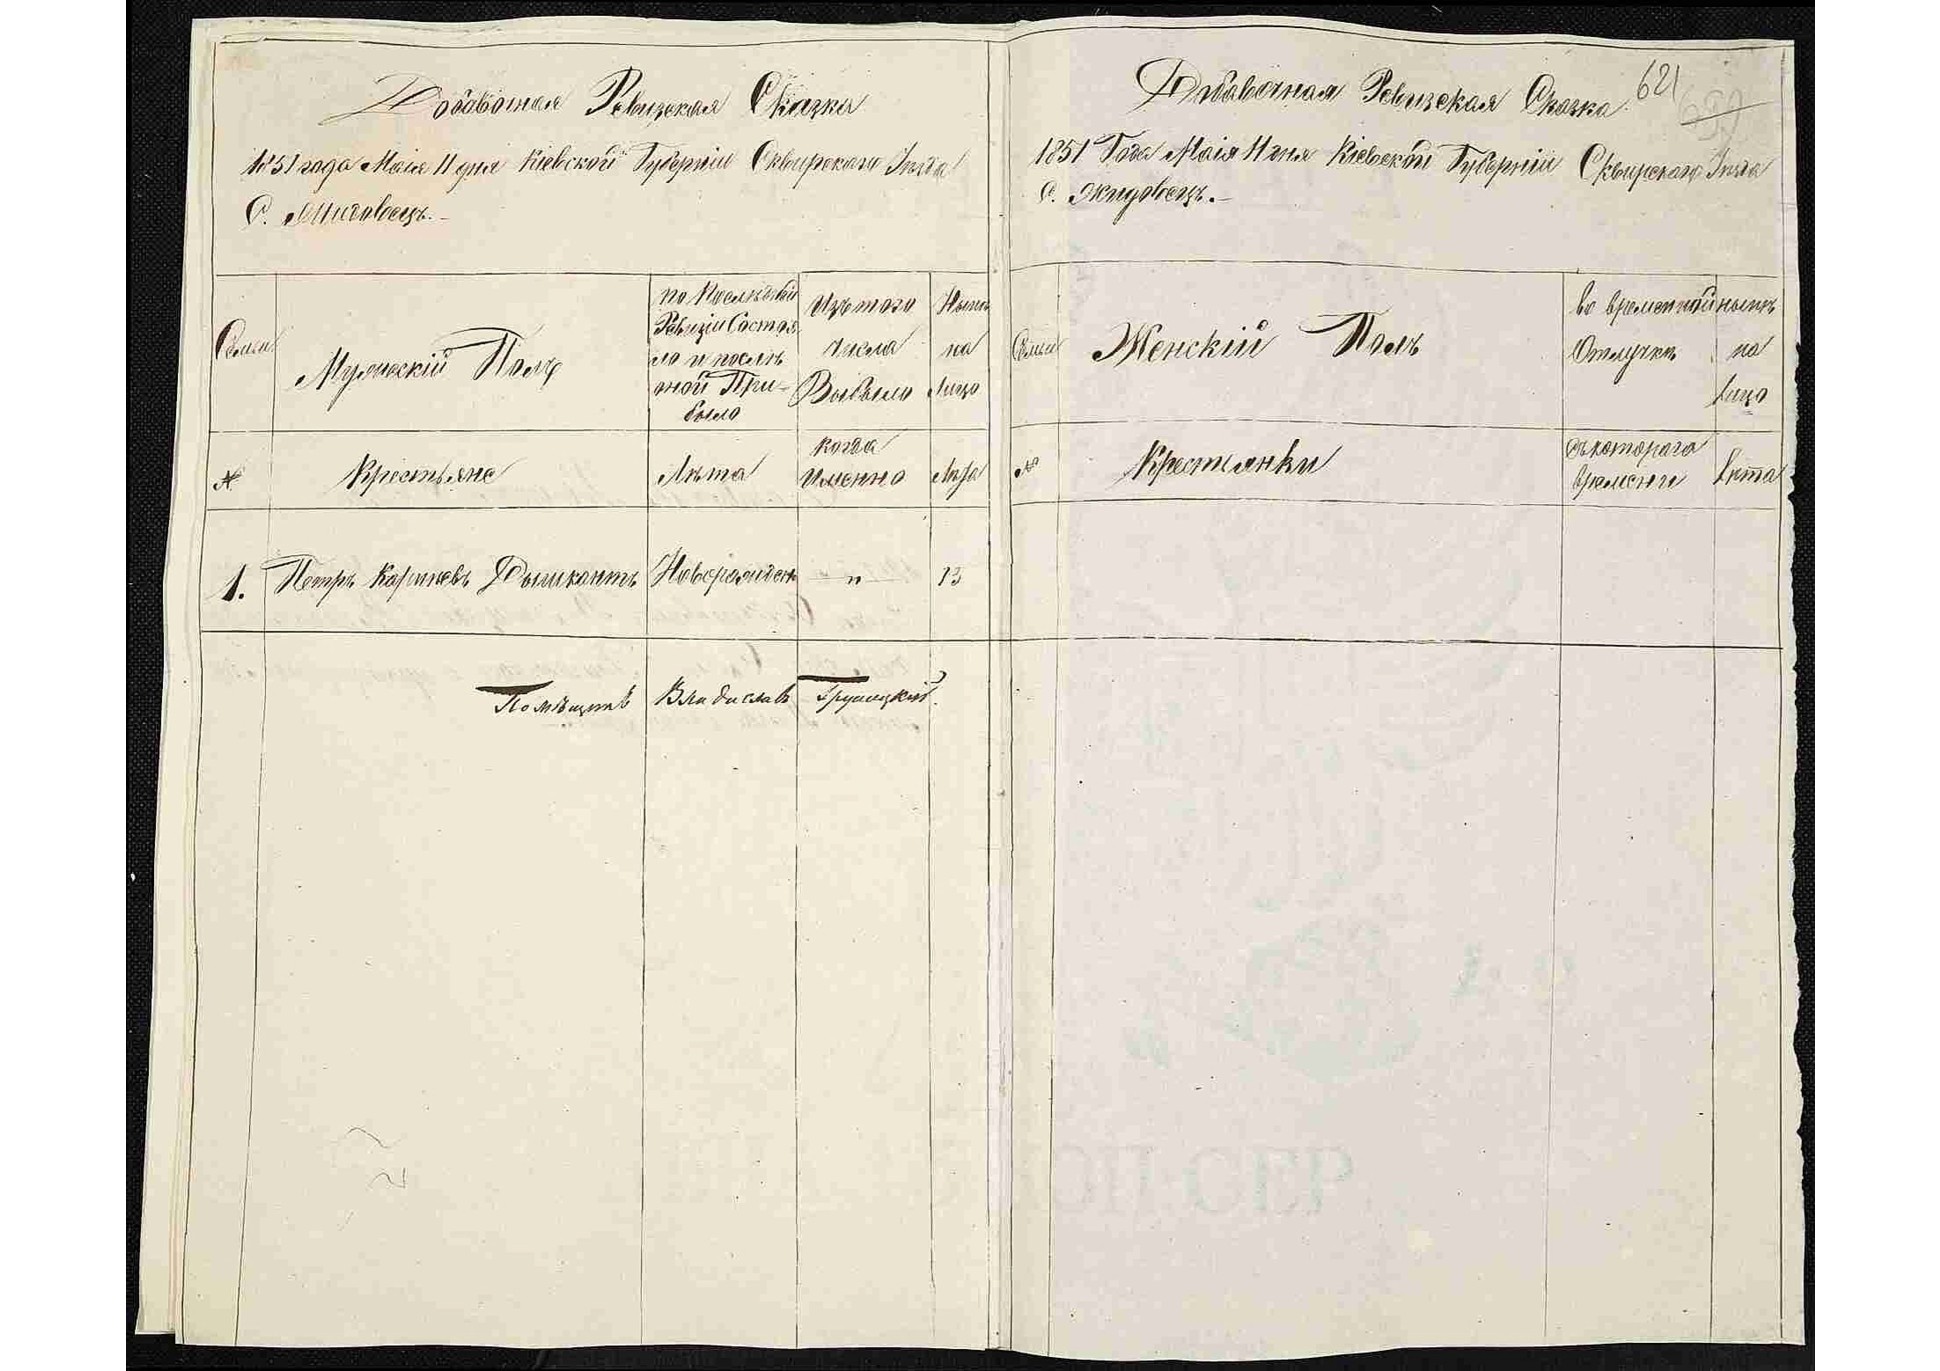 Добавочная Ревизская Сказка
1851 года Маія 11 дня Кіевской Губерніи Сквирского Уезда
С. Жидовець.
Семьи
Мужескій Полъ
по Последней Ревизіи Состояло и после оной Прибыло
Изъ того числа Выбыло
Ныне на Лицо
№
Крестьяне
Лѣта
Когда Именно
Лета
1.
Петръ Карповъ Новорожден
—"—
13
Помѣщикъ Владиславъ
Добавочная Ревизская Сказка
621
1851 Года Маія 11 дня Кіевской Губерніи Сквирского Уезда
С. Жидовецъ.
Семьи
Женскій Полъ
во временной Отлучке
ныне на лицо
№
Крестьянки
съ котораго времени
Лета